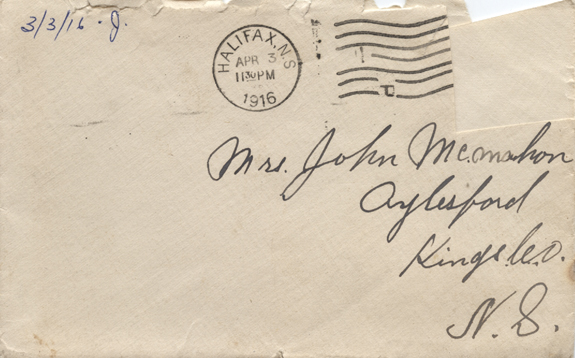 3/3/16 . J.
HALIFAX, N.S
APR 3
1130PM
1916
Mrs. John Mcmahon
Aylesford
Kings Co.
N. S.